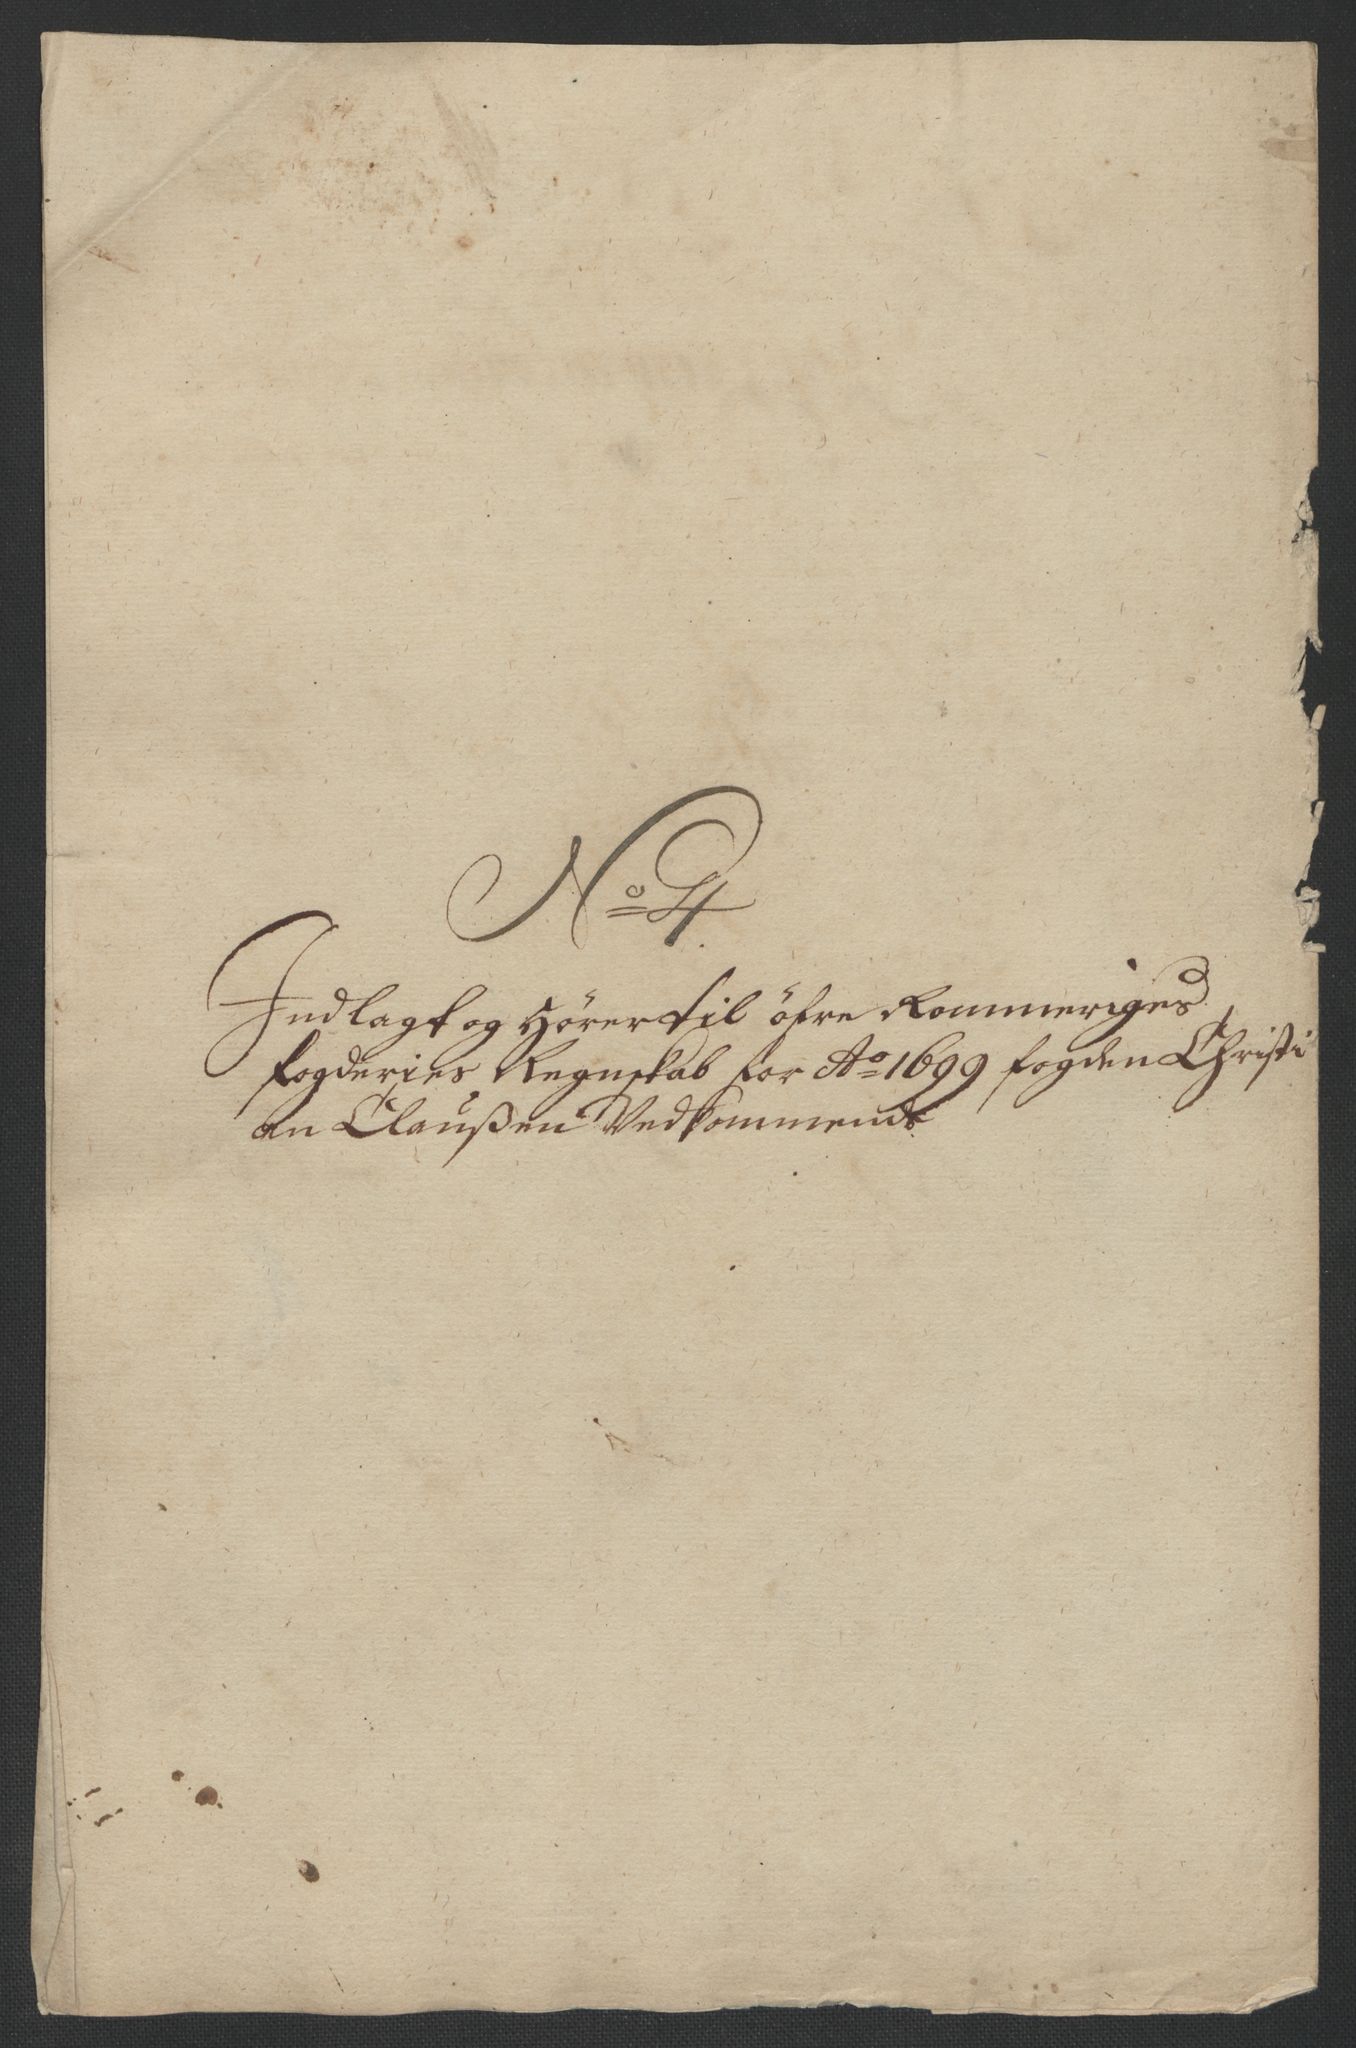 No 4
Indlagt og Hörer til öfre Rommeriges
fogderies Regnskab for Ao 1699 fogden Christi
an Claußen Vedkommende